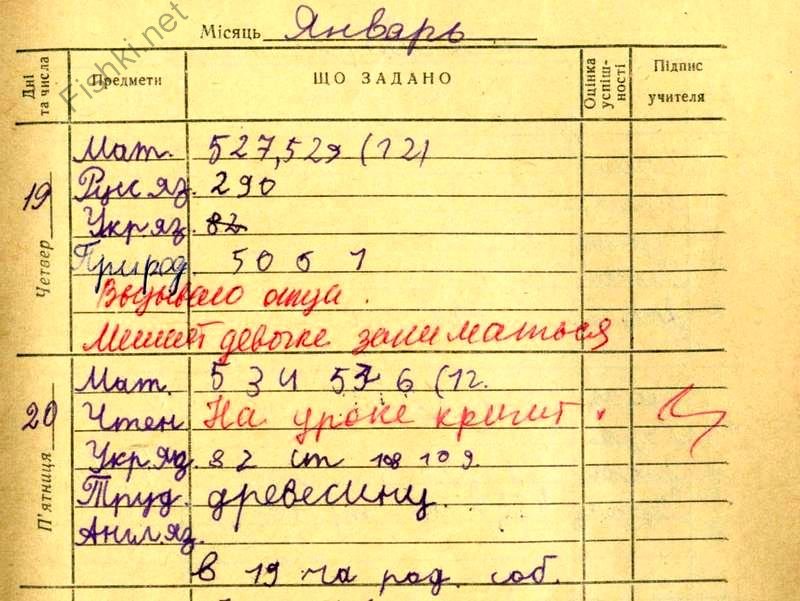 Fishki.net
Місяць Январь
Дні та числа Предмети ЩО ЗАДАНО Оцінка успіш-ності Підпис учителя
19 Четвер
Мат. 527,529 (12)
Русс яз. 290
Укр.яз. 82
Природ. 50 6 1
Вызываю отца.
Мешает девочке заниматься
20 П'ятниця
Мат. 534 537 6 (12.
Чтен На уроке кричит.
Укр.яз. 82 ст 108 109.
Труд. древесину.
Англ.яз.
в 19 ча род. соб.